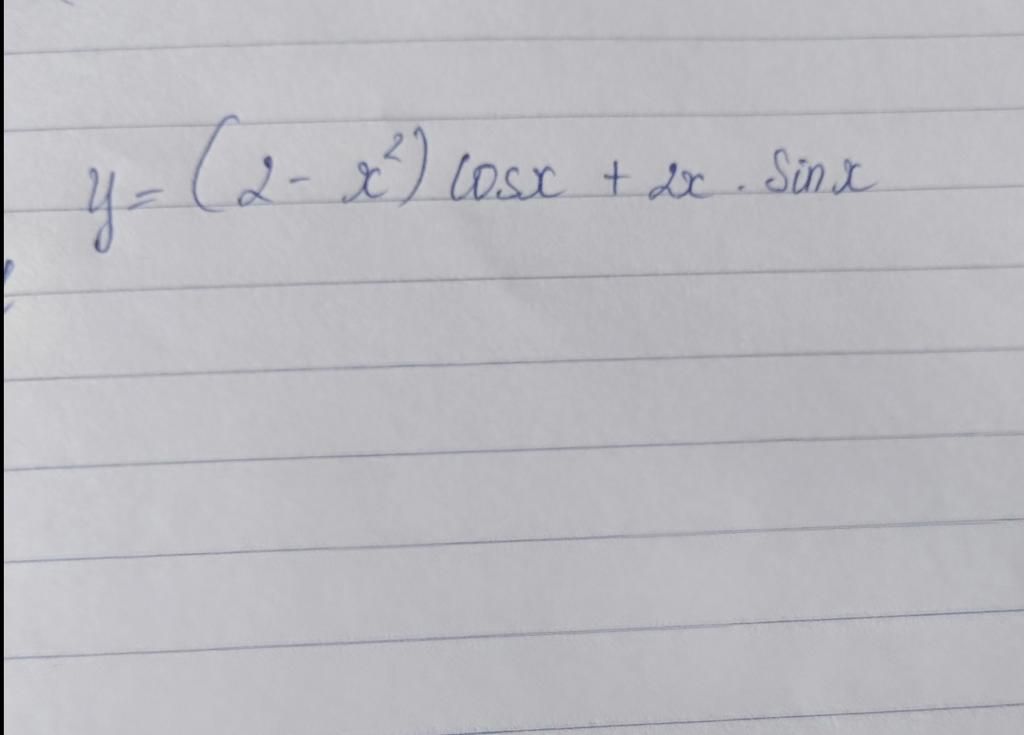 y = (2 - x²) cosx + 2x . Sinx